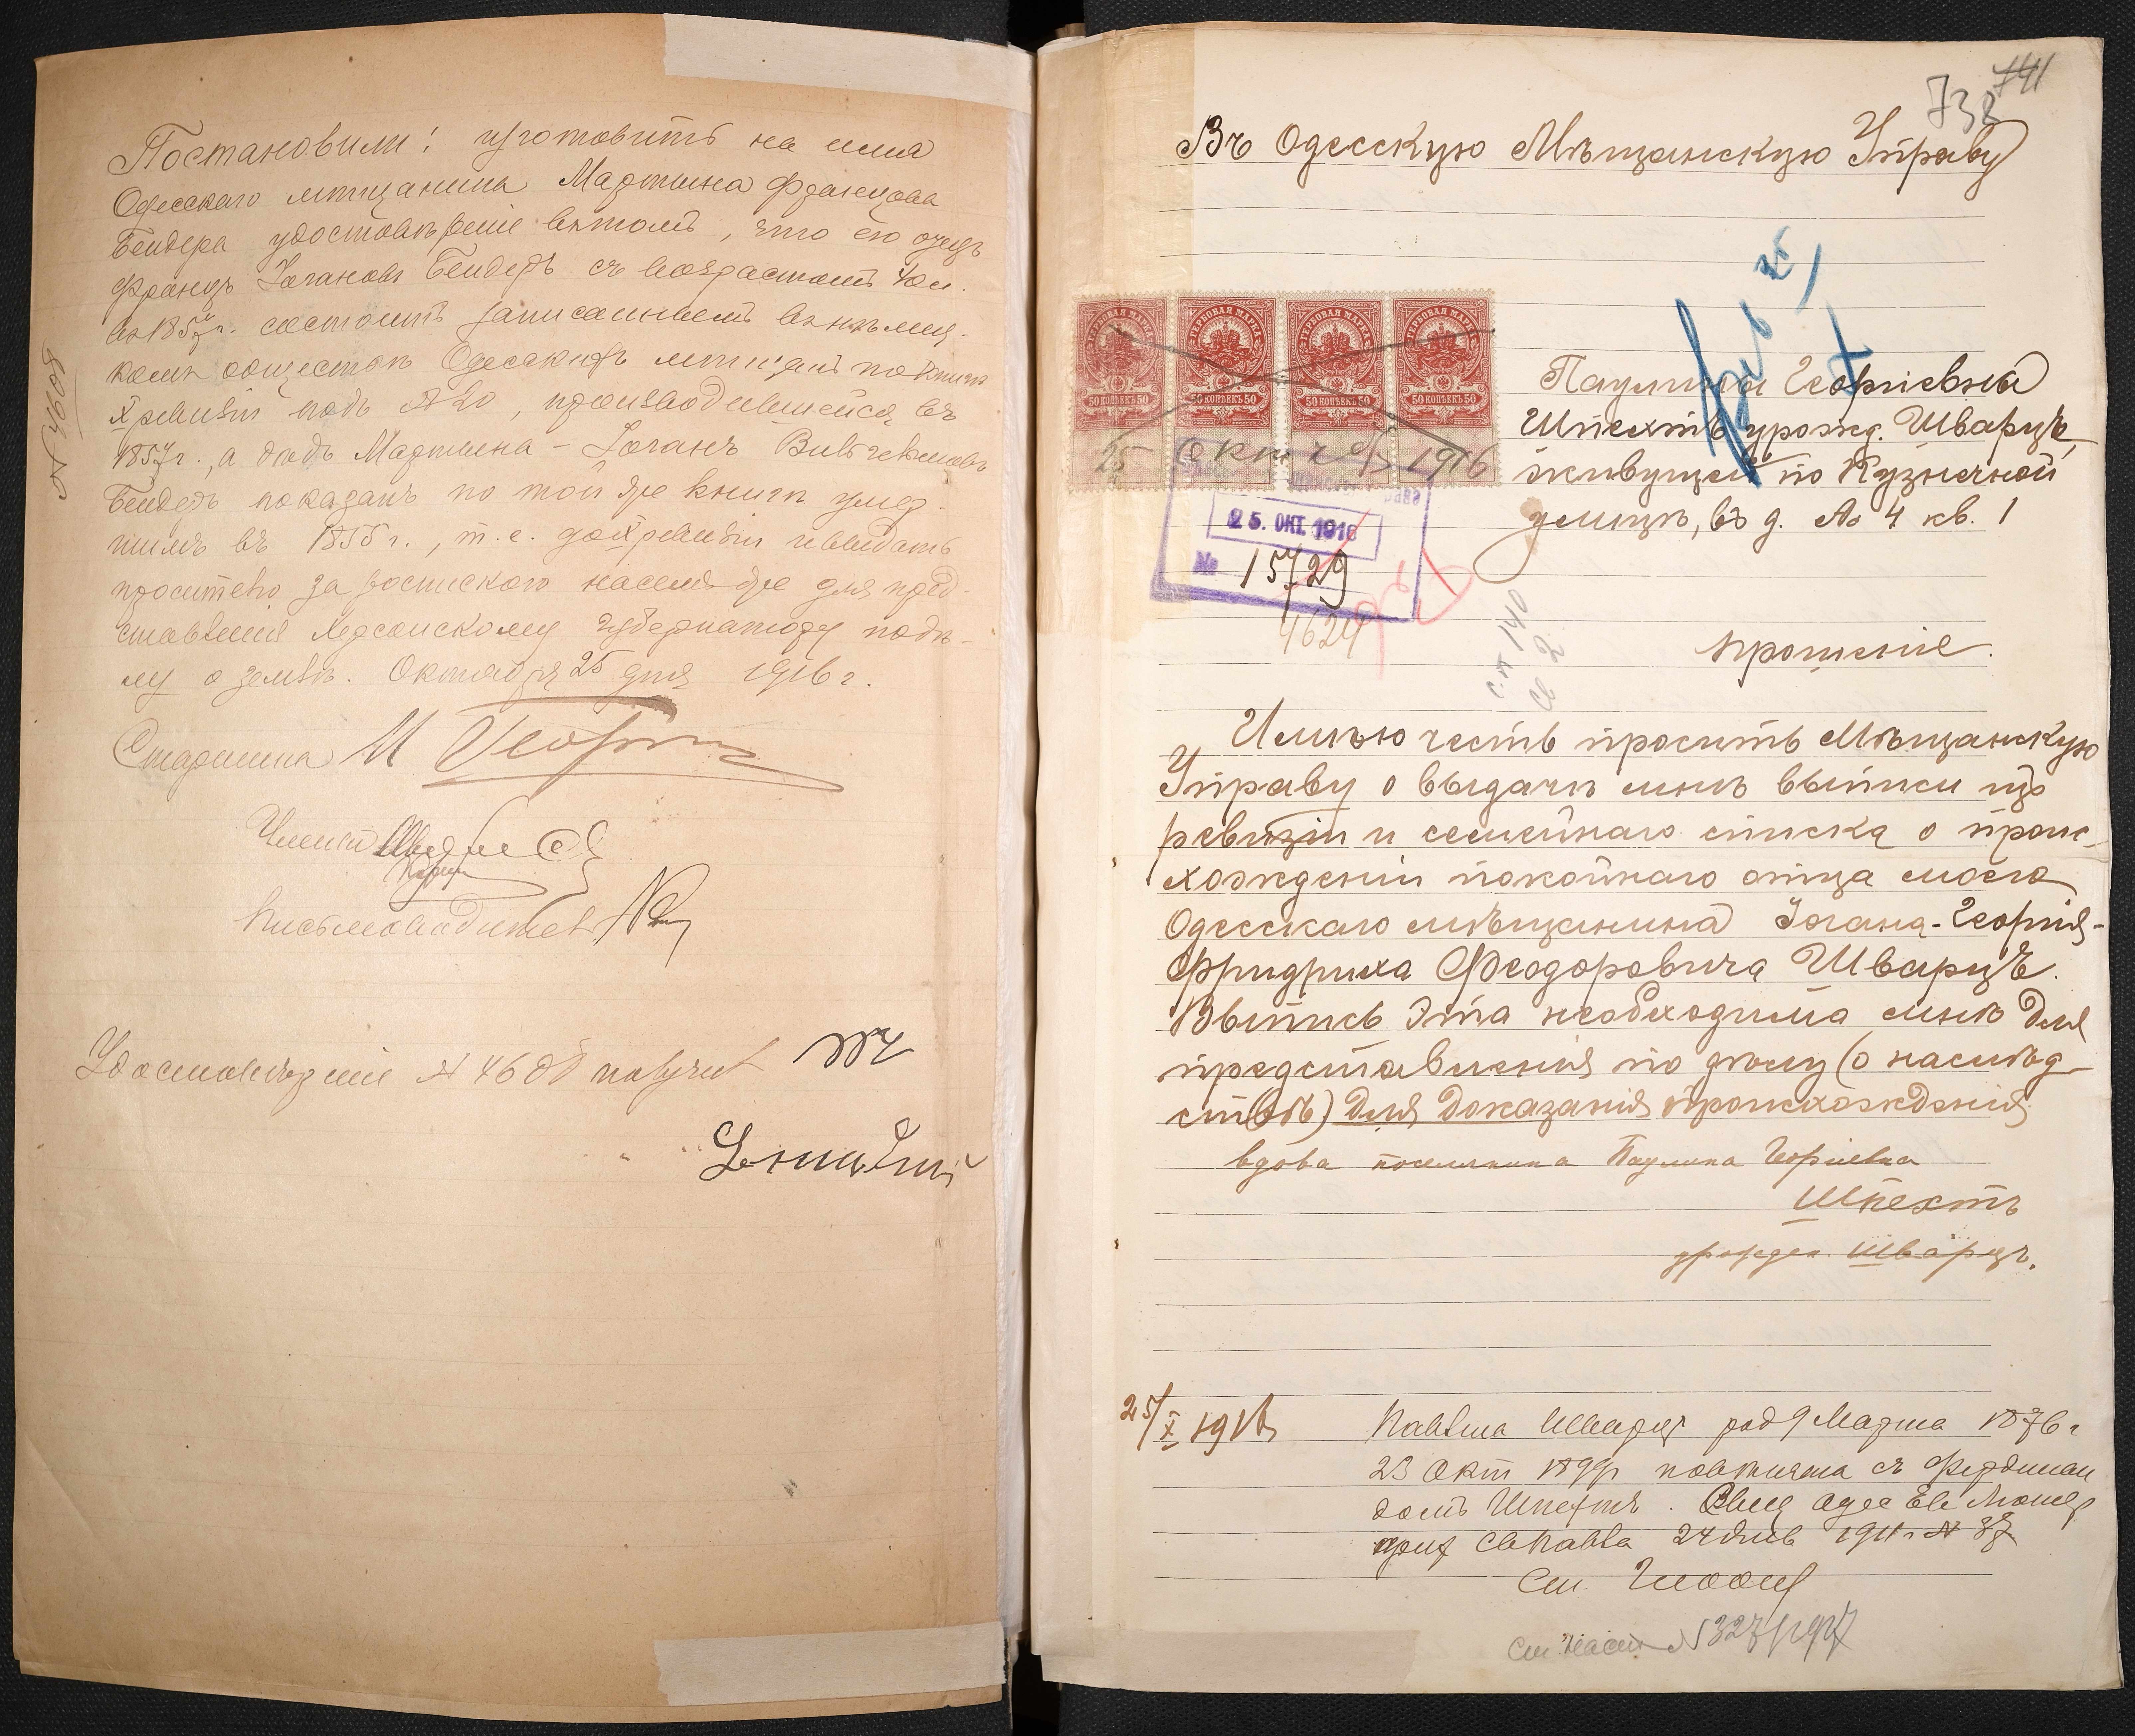 Постановили: изготовить на имя
Одесскаго мѣщанина Мартына Францова
Бендера удостовѣреніе въ томъ, что его отецъ
Францъ Іогановъ Бендеръ съ возрастомъ
въ 1857 г. состоитъ записаннымъ въ нѣмец-
комъ обществѣ Одесскихъ мѣщанъ по книгѣ
X ревизіи подъ № 20, производившейся въ
1857 г., а дѣдъ Мартына - Іоганъ
Бендеръ показанъ по той же книгѣ умер-
шимъ въ 1855 г., т. е. до X ревизіи и выдать
просителю за роспискою на семъ же для пред-
ставленія Херсонскому Губернатору по дѣ-
лу о землѣ. Октября 25 дня 1916 г.
№ 4608
Старшина
Членъ
Письмоводитель
Удостовѣреніе № 4608 получилъ
741
738
Въ Одесскую Мѣщанскую Управу
ГЕРБОВАЯ МАРКА ГЕРБОВАЯ МАРКА ГЕРБОВАЯ МАРКА ГЕРБОВАЯ МАРКА
50 КОПѢЕКЪ 50 50 КОПѢЕКЪ 50 50 КОПѢЕКЪ 50 50 КОПѢЕКЪ 50
25 Октября 1916
25. ОКТ. 1916
№ 15729
4624
Паулины Георгіевны
Шпехтъ урожд. Шварцъ,
живущей по Кузнечной
улицѣ, въ д. № 4 кв. 1
прошеніе.
Имѣю честь просить Мѣщанскую
Управу о выдачѣ мнѣ выписи изъ
ревизіи и семейнаго списка о проис-
хожденіи покойнаго отца моего
Одесскаго мѣщанина Іогана-Георгія-
Фридриха Феодоровича Шварцъ.
Выпись эта необходима мнѣ для
представленія по дѣлу (о наслѣд-
ствѣ) для доказанія происхожденія
вдова поселянина Паулина Георгіевна
Шпехтъ
урожден. Шварцъ.
25/X 1916
Шварцъ род 9 Марта 1876 г
23 Окт повѣнчана съ Фердинан
домъ Шпехтъ. Одес Ев Лютер
1911 г № 37